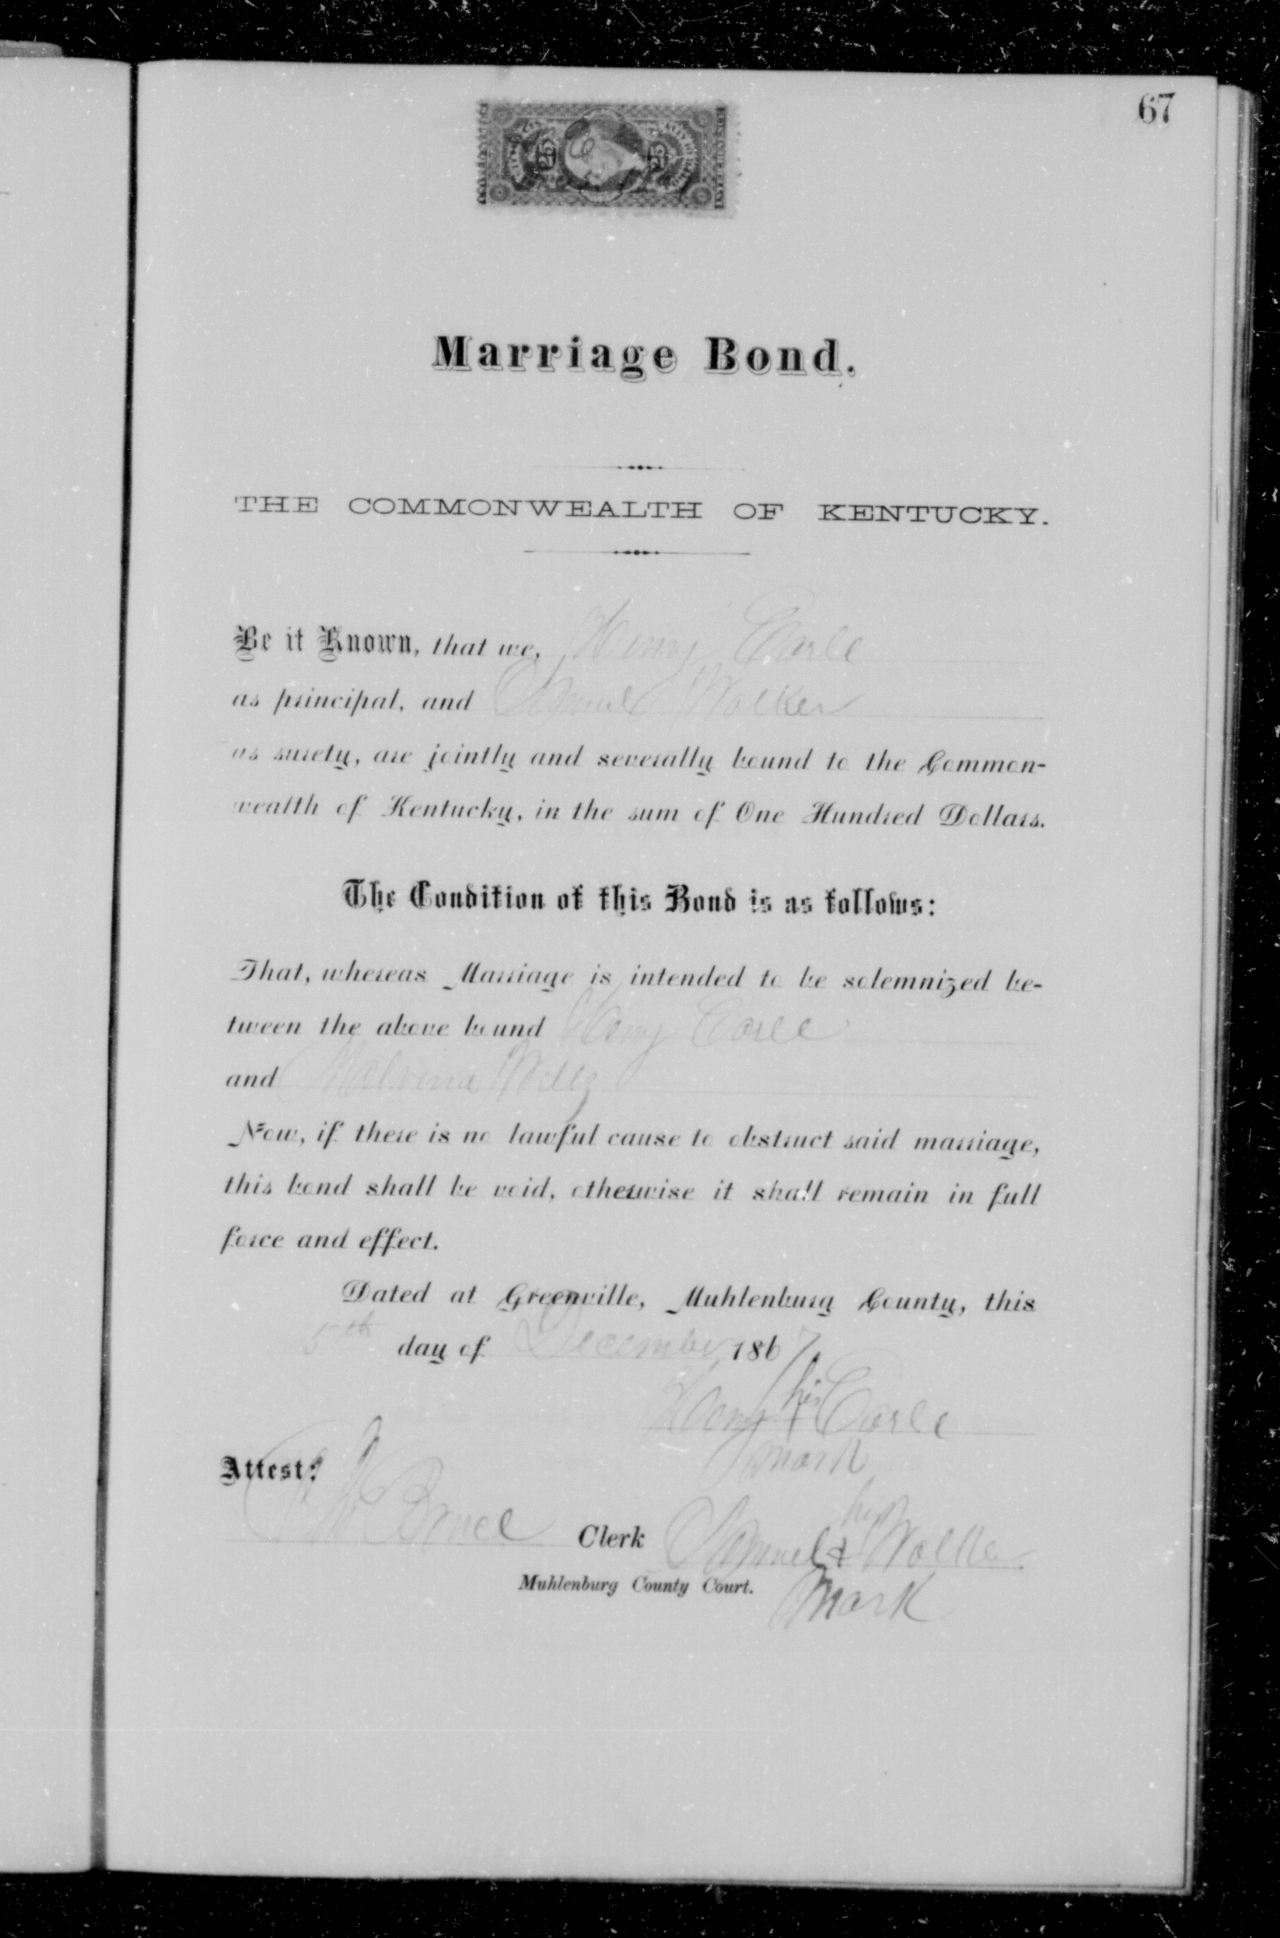 67
25 25
Marriage Bond.
THE COMMONWEALTH OF KENTUCKY.
Be it Known, that we, Henry Earle
as principal, and Samuel Walker
as surety, are jointly and severally bound to the Common-
wealth of Kentucky, in the sum of One Hundred Dollars.
The Condition of this Bond is as follows:
That, whereas Marriage is intended to be solemnized be-
tween the above bound Henry Earle
and Melvina
Now, if there is no lawful cause to obstruct said marriage,
this bond shall be void, otherwise it shall remain in full
force and effect.
Dated at Greenville, Muhlenburg County, this
5th day of December 1867
his
Henry x Earle
mark
Attest:
Bruce Clerk
his
Samuel x Walker
Muhlenburg County Court.
mark